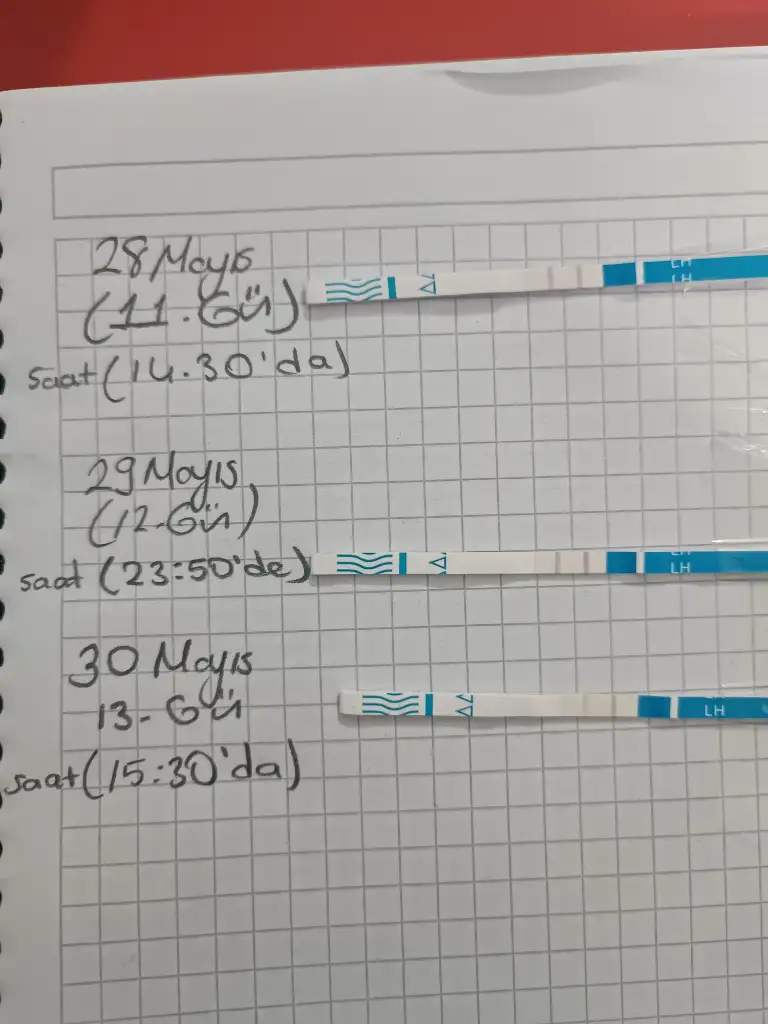 28 Mayıs
(11. Gün)
LH
LH
saat (14.30'da)
29 Mayıs
(12. Gün)
saat (23:50'de)
LH
LH
30 Mayıs
13. Gün
LH
saat (15:30'da)